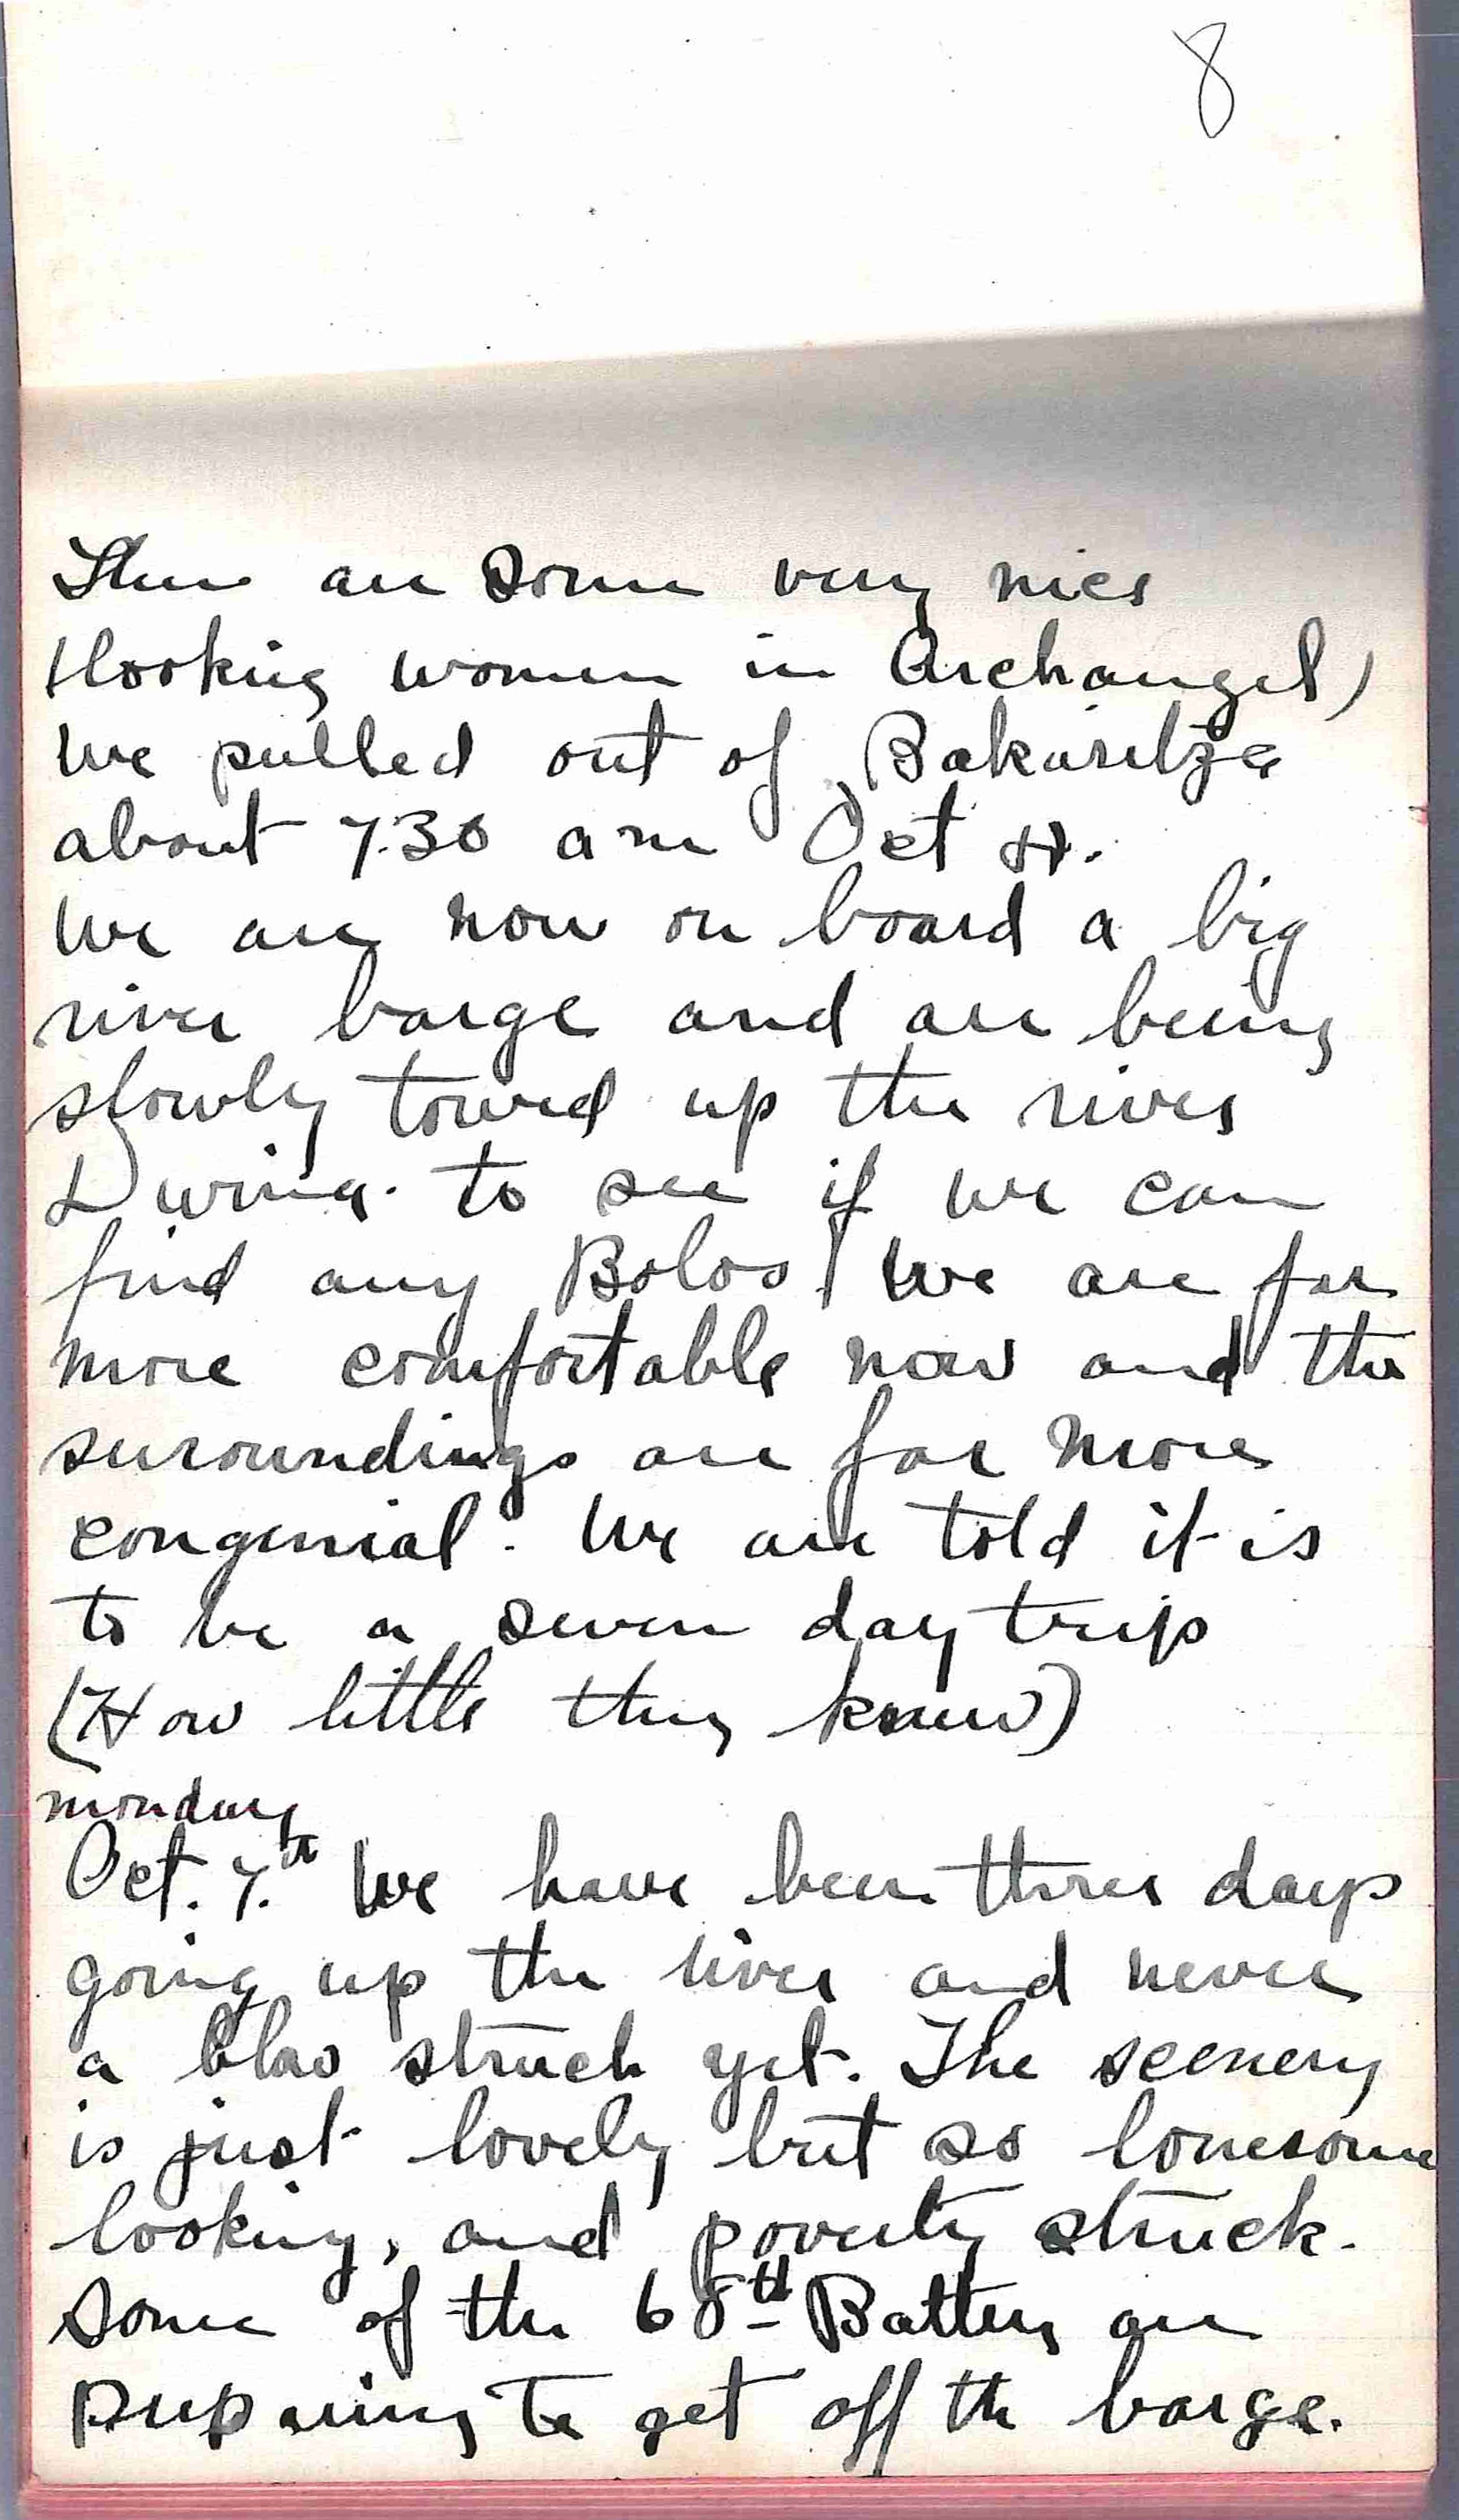 8
There are some very nice
(looking women in Archangel)
We pulled out of Bakaritza
about 7.30 am Oct 4.
We are now on board a big
river barge and are being
slowly towed up the river
Dwina. to see if we can
find any Bolos! We are far
more comfortable now and the
suroundings are far more
congenial. We are told it is
to be a seven day trip
(How little they knew)
Monday
Oct. 7.th We have been three days
going up the river and never
a blow struck yet. The scenery
is just lovely but so lonesome
looking, and poverty struck.
Some of the 68th Battery are
preparing to get off the barge.